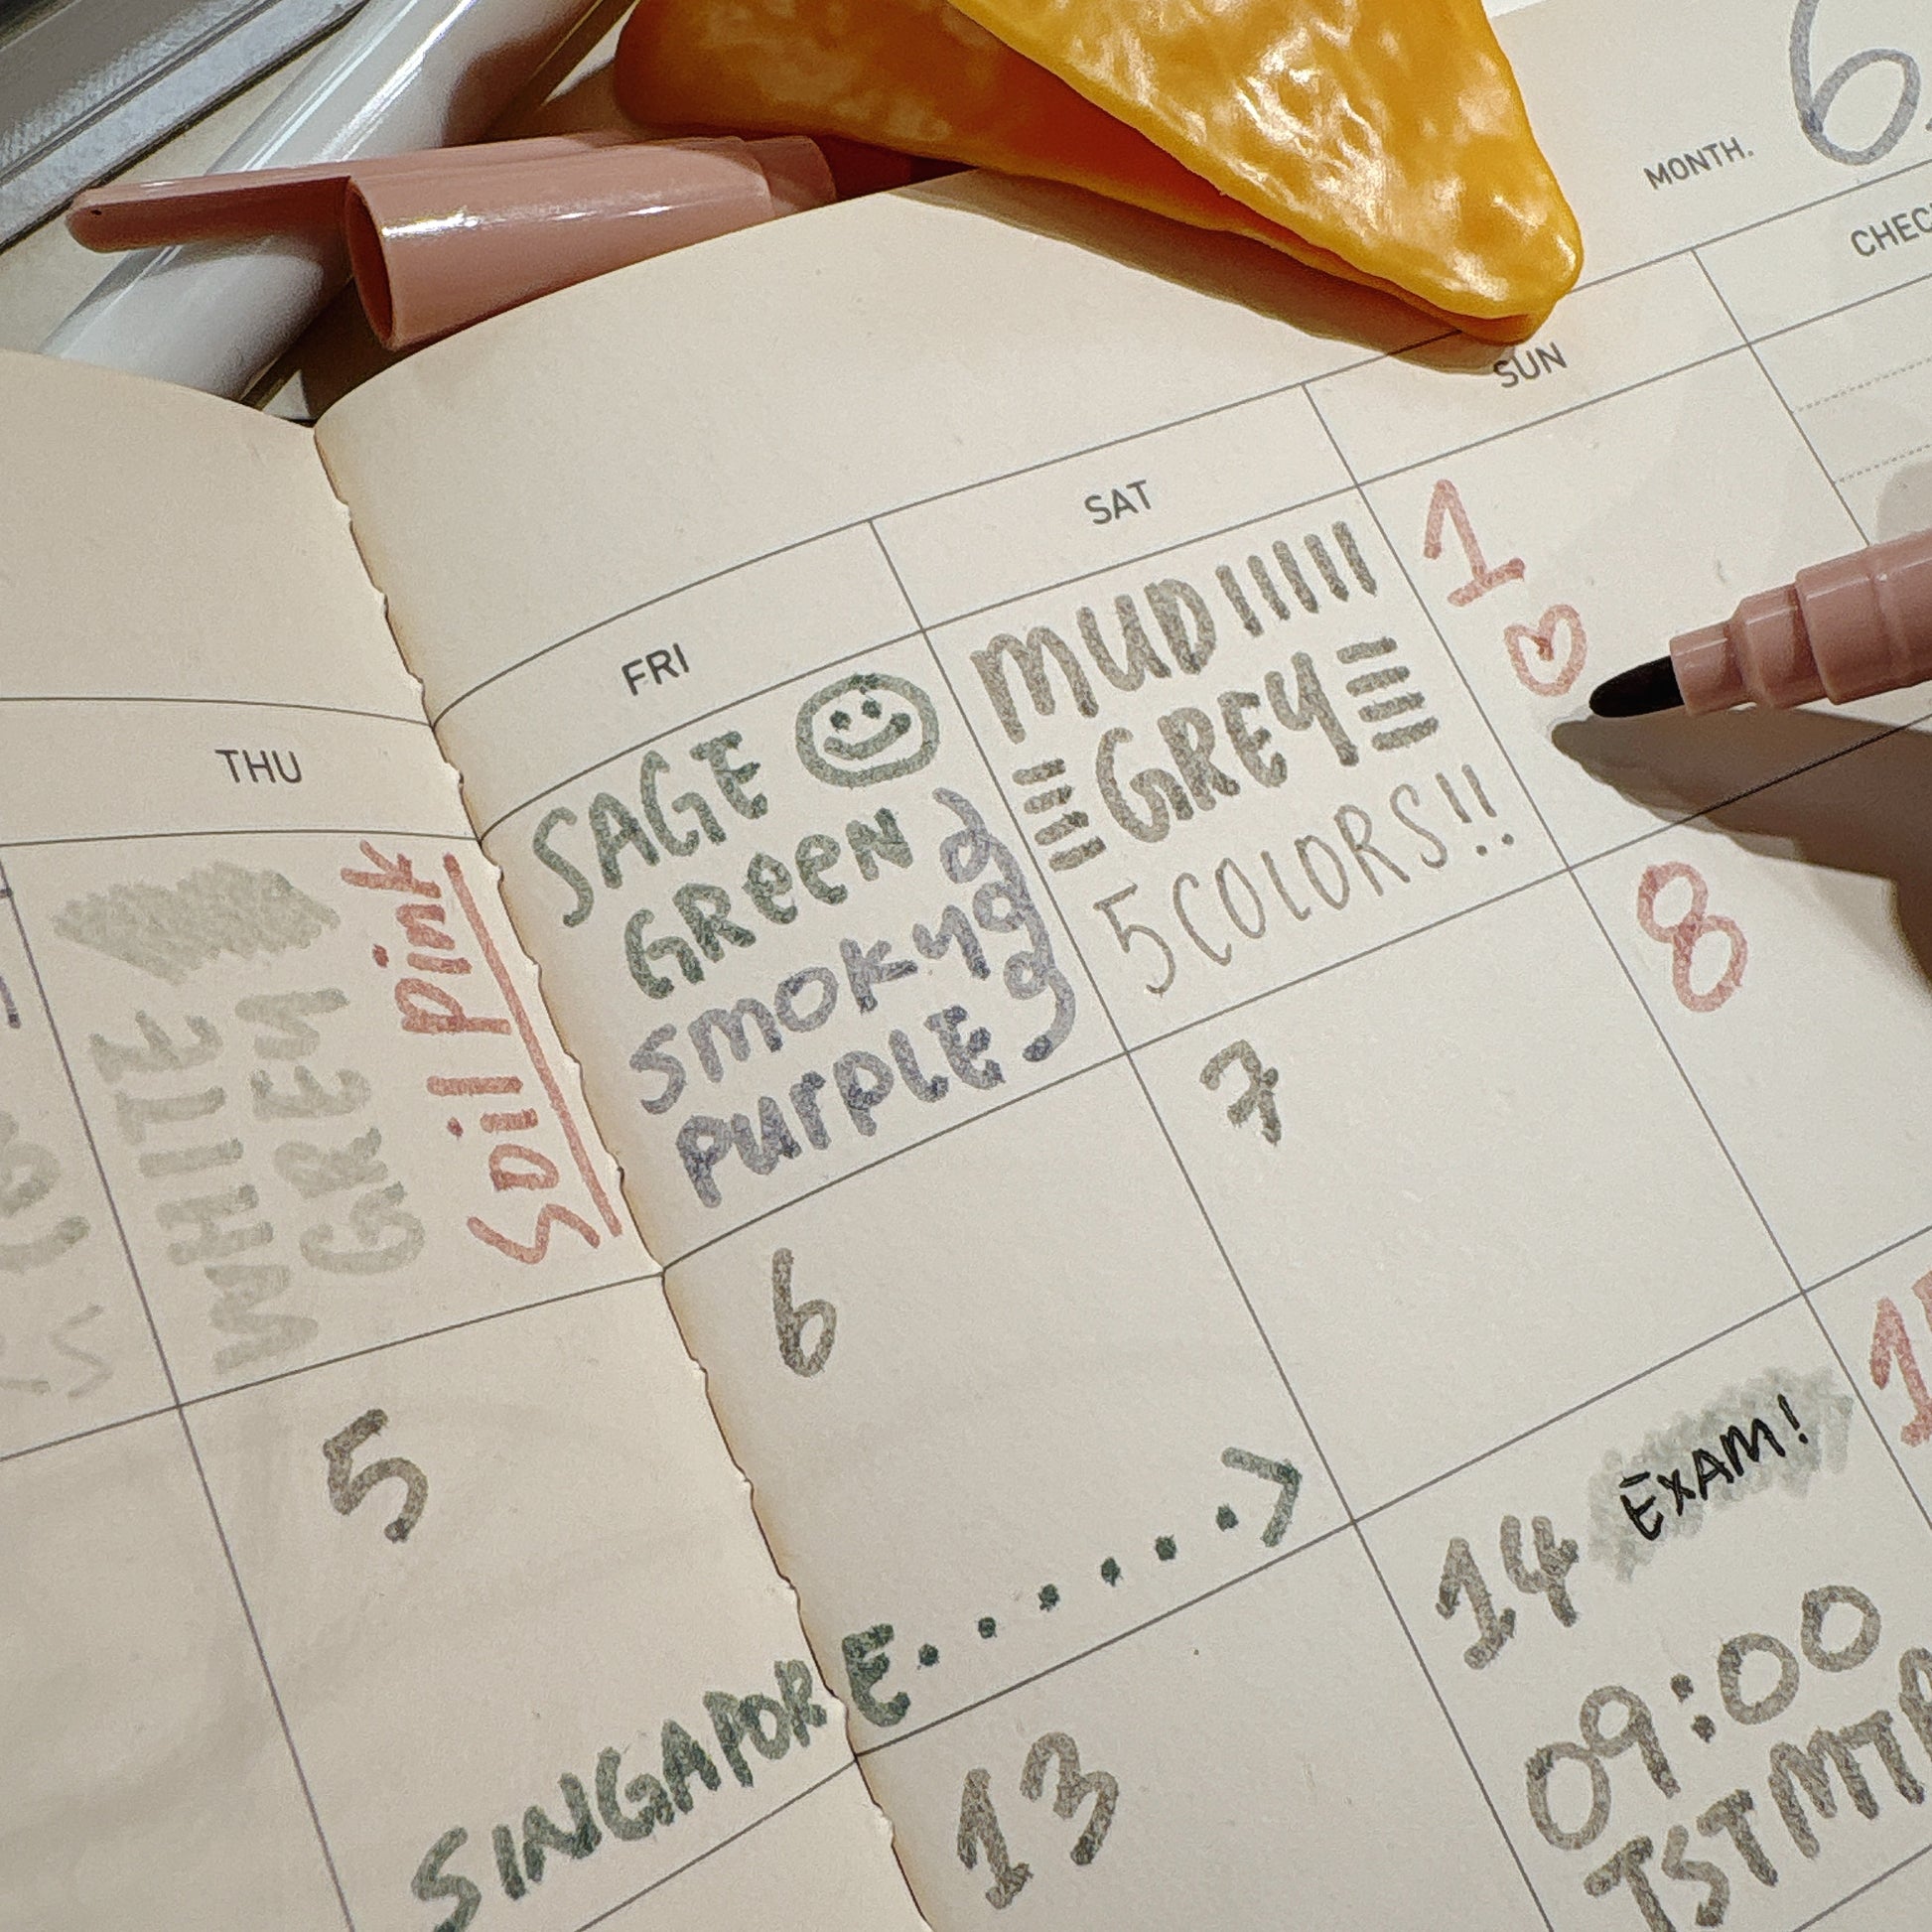 MONTH. 6
CHEC
THU
FRI
SAT
SUN
WHITE
GREY
Soil pink
SAGE
GREEN
SMOKY
PURPLE
MUD!!!!!
GREY
5 COLORS!!
1
5
6
7
8
SINGAPORE......>
13
14 EXAM!
09:00